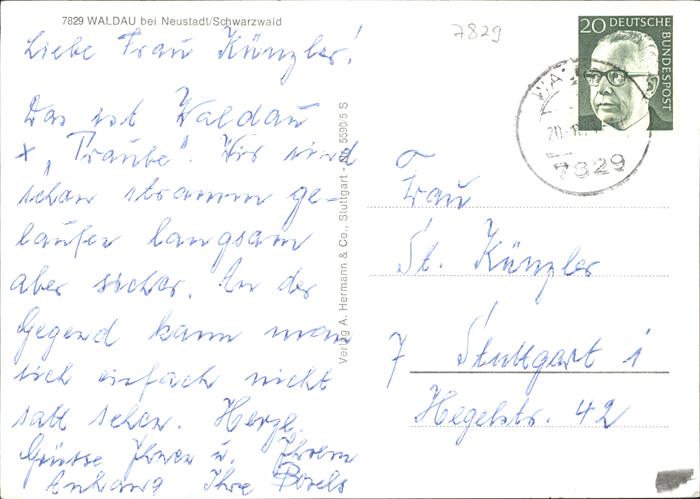 7829 WALDAU bei Neustadt/Schwarzwald
7829
Liebe Frau Künzler!
Das ist Waldau
x „Traube". Wir sind
schon stramm ge-
laufen langsam
aber sicher. In der
Gegend kann man
sich einfach nicht
satt sehen. Herzl.
Grüsse Ihnen u. Ihrem
Anhang Ihre
Verlag A. Hermann & Co., Stuttgart - Nr. 5590/5 S
20 DEUTSCHE
BUNDESPOST
7829
Frau
St. Künzler
7 Stuttgart 1
Hegelstr. 42